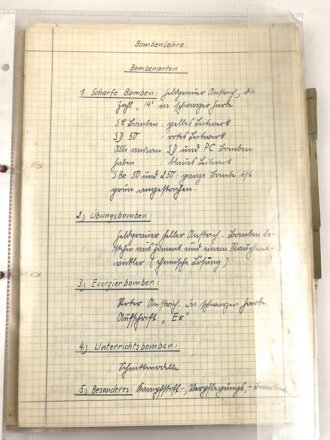 Bombenlehre
Bombenarten
1. Scharfe Bomben: feldgrauer Anstrich, die
Zahl "14" in schwarzer Farbe
SC Bomben: gelbes Leitwerk
SD 50 : rotes Leitwerk
Alle anderen SD und PC Bomben
haben : blaues Leitwerk
50 und 250: ganze Bombe ist
grün angestrichen.
2.) Übungsbomben
Feldgrauer heller Anstrich. Bomben be-
stehen aus Zement und einem Rauchent-
wickler (chemische Lösung)
3.) Exerzierbomben:
Roter Anstrich. In schwarzer Farbe
Aufschrift "Ex"
4.) Unterrichtsbomben:
Schnittmodelle
5.) Besonderes: Kampfstoff-, Verpflegungs-,